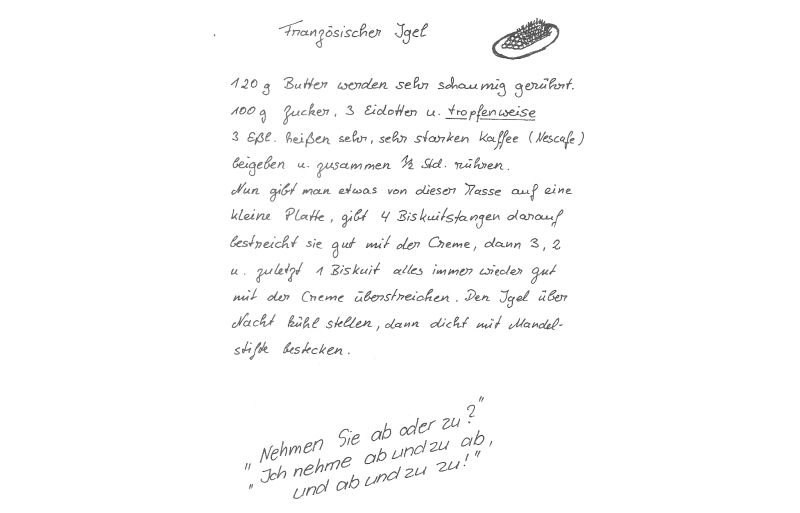 Französischer Igel
120 g Butter werden sehr schaumig gerührt.
100 g Zucker, 3 Eidotter u. tropfenweise
3 Eßl. heißen sehr, sehr starken Kaffee (Nescafe)
beigeben u. zusammen ½ Std. rühren.
Nun gibt man etwas von dieser Masse auf eine
kleine Platte, gibt 4 Biskuitstangen darauf
bestreicht sie gut mit der Creme, dann 3, 2
u. zuletzt 1 Biskuit alles immer wieder gut
mit der Creme überstreichen. Den Igel über
Nacht kühl stellen, dann dicht mit Mandel-
stifte bestecken.
"Nehmen Sie ab oder zu?"
"Ich nehme ab und zu ab,
"und ab und zu zu!"